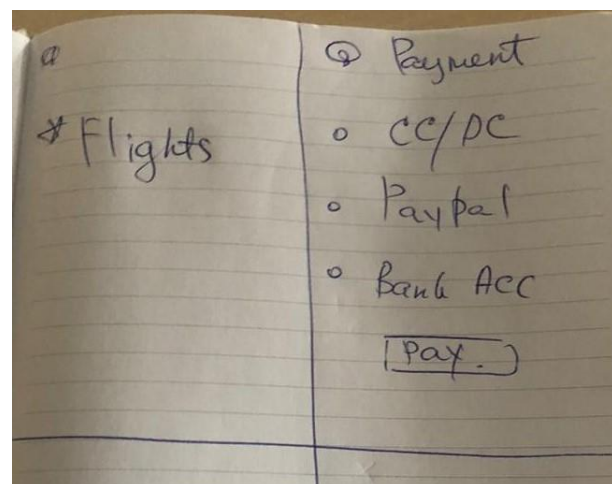 * Flights
Payment
o CC/DC
o Paypal
o Bank Acc
Pay.